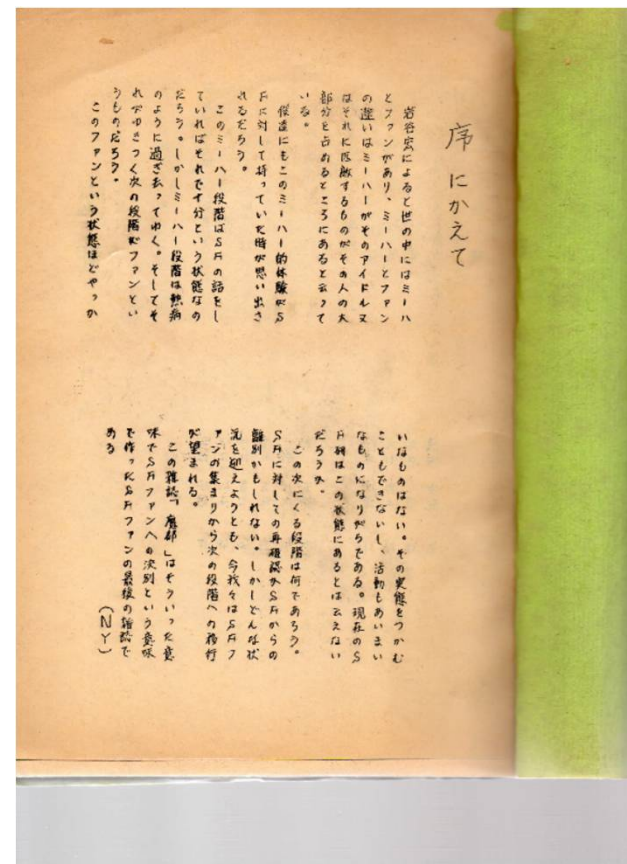 序にかえて
岩谷宏によると世の中にはミーハ
とファンがあり、ミーハーとファン
の違いはミーハーがそのアイドル又
はそれに匹敵するものがその人の大
部分を占めるところにあると云って
いる。
僕達にもこのミーハー的体験がS
Fに対して持っていた時が思い出さ
れるだろう。
このミーハー段階はSFの話をし
ていればそれで十分という状態なの
だろう。しかしミーハー段階は熱病
のように過ぎ去ってゆく。そしてそ
れがゆきつく次の段階がファンとい
うものだろう。
このファンという状態ほどやっか
いなものはない。その実態をつかむ
こともできないし、活動もあいまい
なものになりがちである。現在のS
F研はこの状態にあるとは云えない
だろうか。
この次にくる段階は何であろう。
SFに対しての再確認かSFからの
離別かもしれない。しかしどんな状
況を迎えようとも、今我々はSFフ
ァンの集まりから次の段階への移行
が望まれる。
この雑誌「魔都」はそういった意
味でSFファンへの決別という意味
で作ったSFファンの最後の雑誌で
ある
(NY)